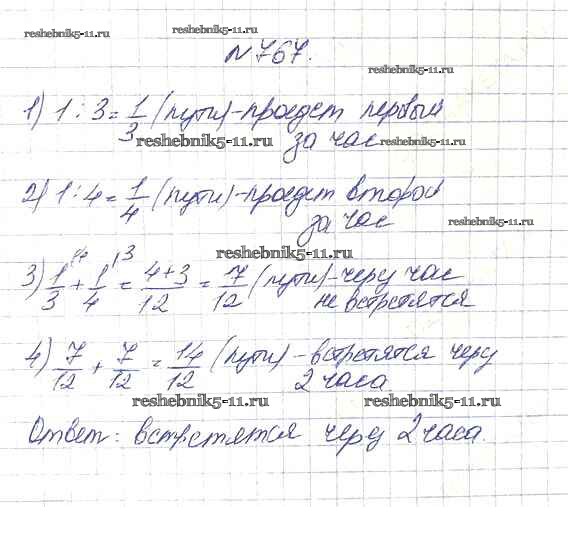 reshebnik5-11.ru reshebnik5-11.ru
№767.
reshebnik5-11.ru
1) 1 : 3 = 1/3 (пути) - проедет первый
reshebnik5-11.ru за час reshebnik5-11.ru
2) 1 : 4 = 1/4 (пути) - проедет второй
за час reshebnik5-11.ru
reshebnik5-11.ru
3) 1/3 + 1/4 = 4+3/12 = 7/12 (пути) - через час
не встретятся
4) 7/12 + 7/12 = 14/12 (пути) - встретятся через
2 часа
reshebnik5-11.ru reshebnik5-11.ru
Ответ: встретятся через 2 часа.
reshebnik5-11.ru